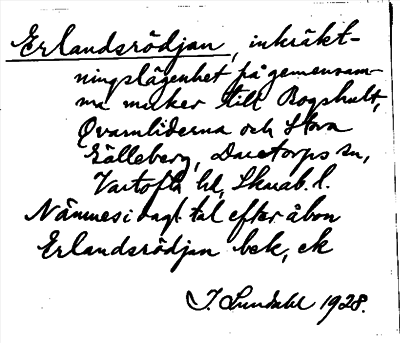 Erlandsrödjan, inkräkt-
ningslägenhet på gemensam-
ma marker till Bogshult,
Qvarnliderna och Stora
Källeberg, Daretorps sn,
Vartofta hd, Skarab. l.
Nämnes i dagl. tal efter åbon
Erlandsrödjan bek, ek
J. Lundahl 1928.